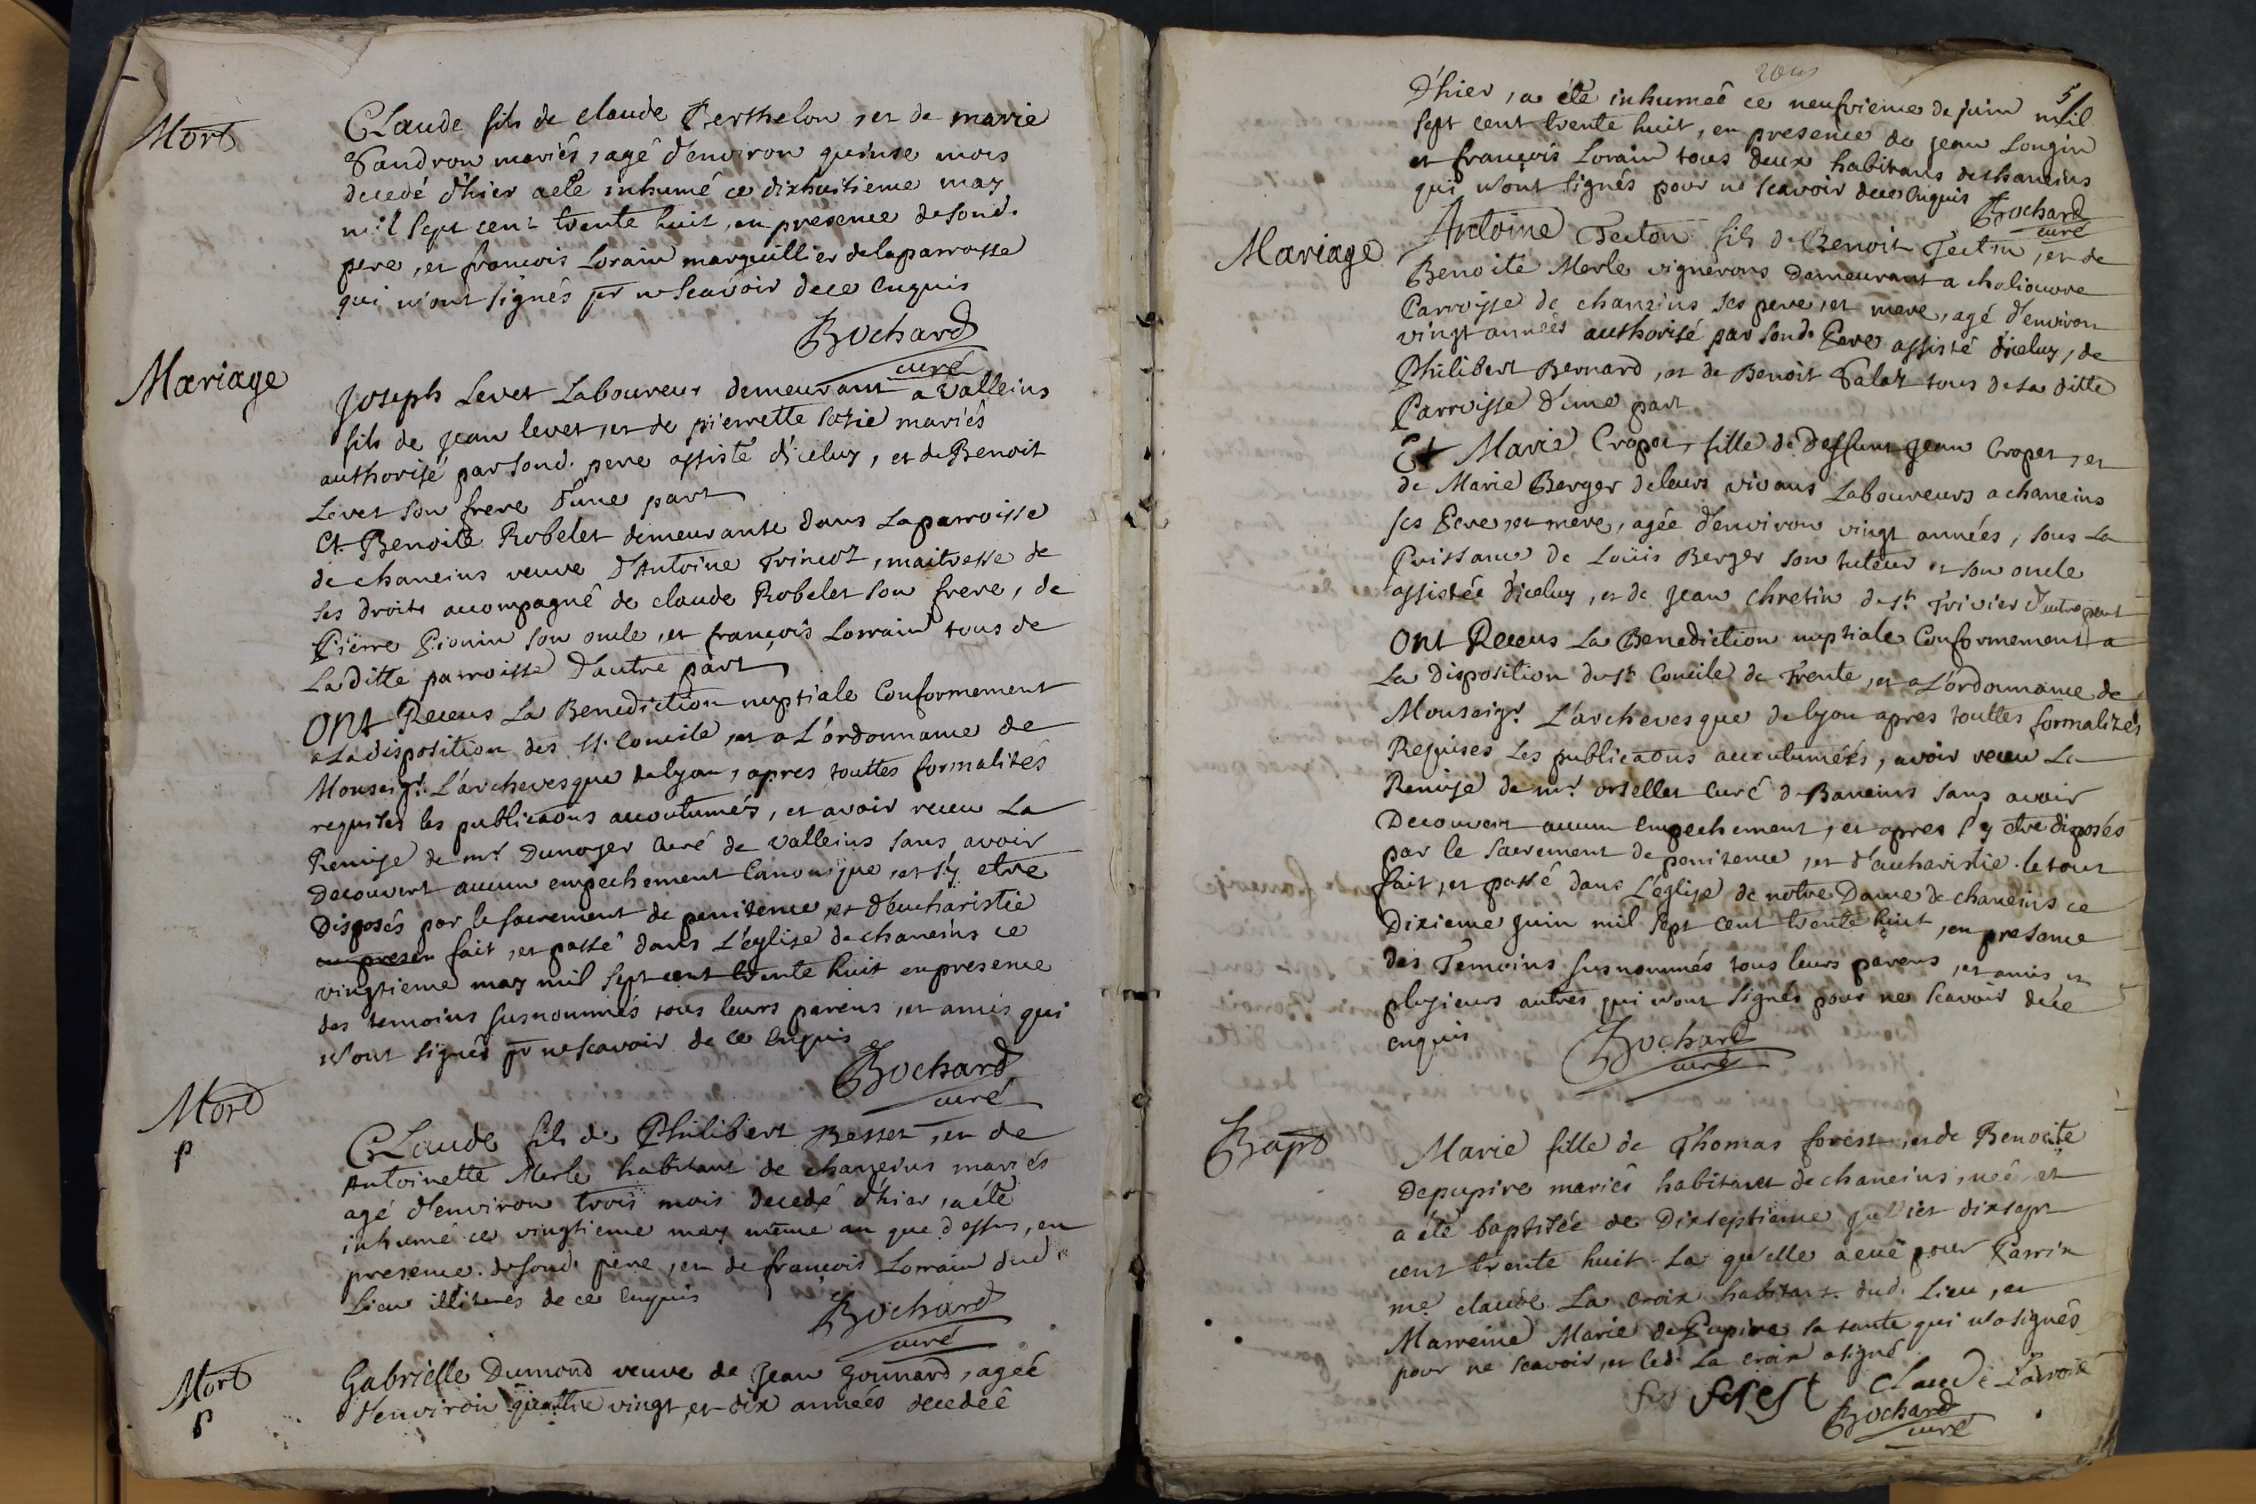 Mort
CLaude fils de claude Berthelon, et de marie
Gandron mariés, agé d'environ quinse mois
decedé d'hier a eté inhumé ce dixhuitieme may
mil sept cent trente huit, en presence de sond.
pere, et francois Lorain marguillier de la parroisse
qui n'ont signés pr ne scavoir de ce enquis
Bochard
curé
Mariage
Joseph Levet Laboureur demeurant a valleins
fils de jean levet, et de pierrette mariés
authorisé par sond. pere assisté d'iceluy, et de Benoit
Levet son frere d'une part
Et Benoite Robelet demeurante dans La parroisse
de chaneins veuve d'Antoine Trincoz, maitresse de
ses droits accompagné de claude Robelet son frere, de
Pierre Pionin son oncle, et françois Lorrain tous de
La ditte parroisse d'autre part
Ont Receus La Benediction nuptiale Conformement
a La disposition des St. Concile, et a L'ordonnance de
Monseigr. L'archevesque de lyon, apres touttes formalités
requises les publicaons accoutumés, et avoir receu La
Remise de mr. Dunoyer curé de valleins sans avoir
Decouvert aucun empechement Canonique, et s'y etre
Disposés par le sacrement de penitence, et d'eucharistie
en presen fait, et passé dans L'eglise de chaneins ce
vingtieme may mil sept cent trente huit en presence
des temoins susnommés tous leurs parens, et amis qui
n'ont signés pr ne scavoir de ce enquis
Bochard
curé
Mort
p
CLaude fils de Philibert Besset, et de
Antoinette Merle habitant de chaneins mariés
agé d'environ trois mois decedé d'hier, a été
inhumé ce vingtieme may même an que dessus, en
presence de sond. pere, et de francois Lorrain dud.
Lieu illiterés de ce enquis
Bochard
curé
Mort
p
Gabrielle Dumond veuve de Jean Gonnard, ageé
d'environ quattre vingt, et dix années decedeé
5
d'hier, a été inhumeé ce neufvieme de juin mil
sept cent trente huit, en presence de jean Longin
et françois Lorain tous deux habitans de chaneins
qui n'ont signés pour ne scavoir de ce enquis
Bochard
curé
Mariage
Antoine Tecton fils de Benoit Tecton, et de
Benoite Merle vignerons demeurant a choliouvre
Parroisse de chaneins ses pere, et mere, agé d'environ
vingt années authorisé par sond. Pere assisté d'iceluy, de
Philibert Bernard, et de Benoit Galaz tous de sa ditte
Parroisse d'une part
Et Marie Cropet, fille de Deffunt jean Cropet, et
de Marie Berger de leurs vivans Laboureurs a chaneins
ses Pere, et mere, agée d'environ vingt années, sous La
Puissance de Loüis Berger son tuteur et son oncle
assistée d'iceluy, et de jean chretin de St. Trivier d'autre part
Ont Receus La Benediction nuptiale Conformement a
La Disposition du St. Concile de Trente, et a L'ordonnance de
Monseigr. L'archevesque de lyon apres touttes formalités
Requises Les publicaons accoutumées, avoir receu La
Remise de mr. orsellet curé de Baneins sans avoir
Decouvert aucun empechement, et apres s'y etre disposés
par le sacrement de penitence, et d'eucharistie. le tout
fait, et passé dans L'eglise de notre Dame de chaneins ce
Dixieme juin mil sept cent trente huit, en presence
des Temoins susnommés tous leurs parens, et amis et
plusieurs autres qui n'ont signés pour ne scavoir de ce
enquis
Bochard
curé
Bapt
Marie fille de Thomas forest, et de Benoite
Depupire mariés habitant de chaneins, neé, et
a été baptisée ce Dixseptieme juillet dixsept
cent trente huit. La qu'elle a eue pour Parrin
me claude La croix habitant. dud. Lieu, et
Marreine Marie de Pupire sa tante qui n'a signés
pour ne scavoir, et led. La croix a signé
forest
Claude Lacroix
Bochard
curé